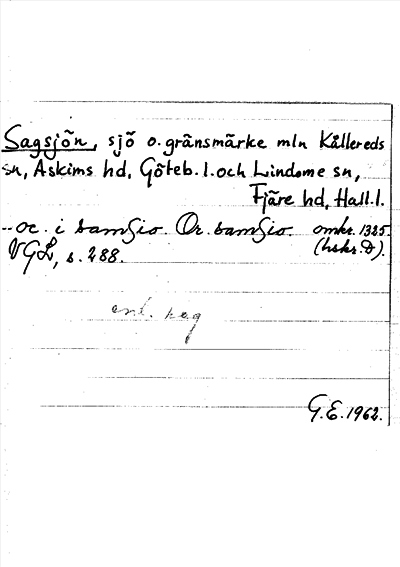 Sagsjön, sjö o. gränsmärke mln Kållereds
sn, Askims hd, Göteb. l. och Lindome sn,
Fjäre hd, Hall. l.
-- oc. i samsio. Or samsio. omkr. 1325.
(hskr. D).
VGL, s. 288.
enl. seg
G.E. 1962.